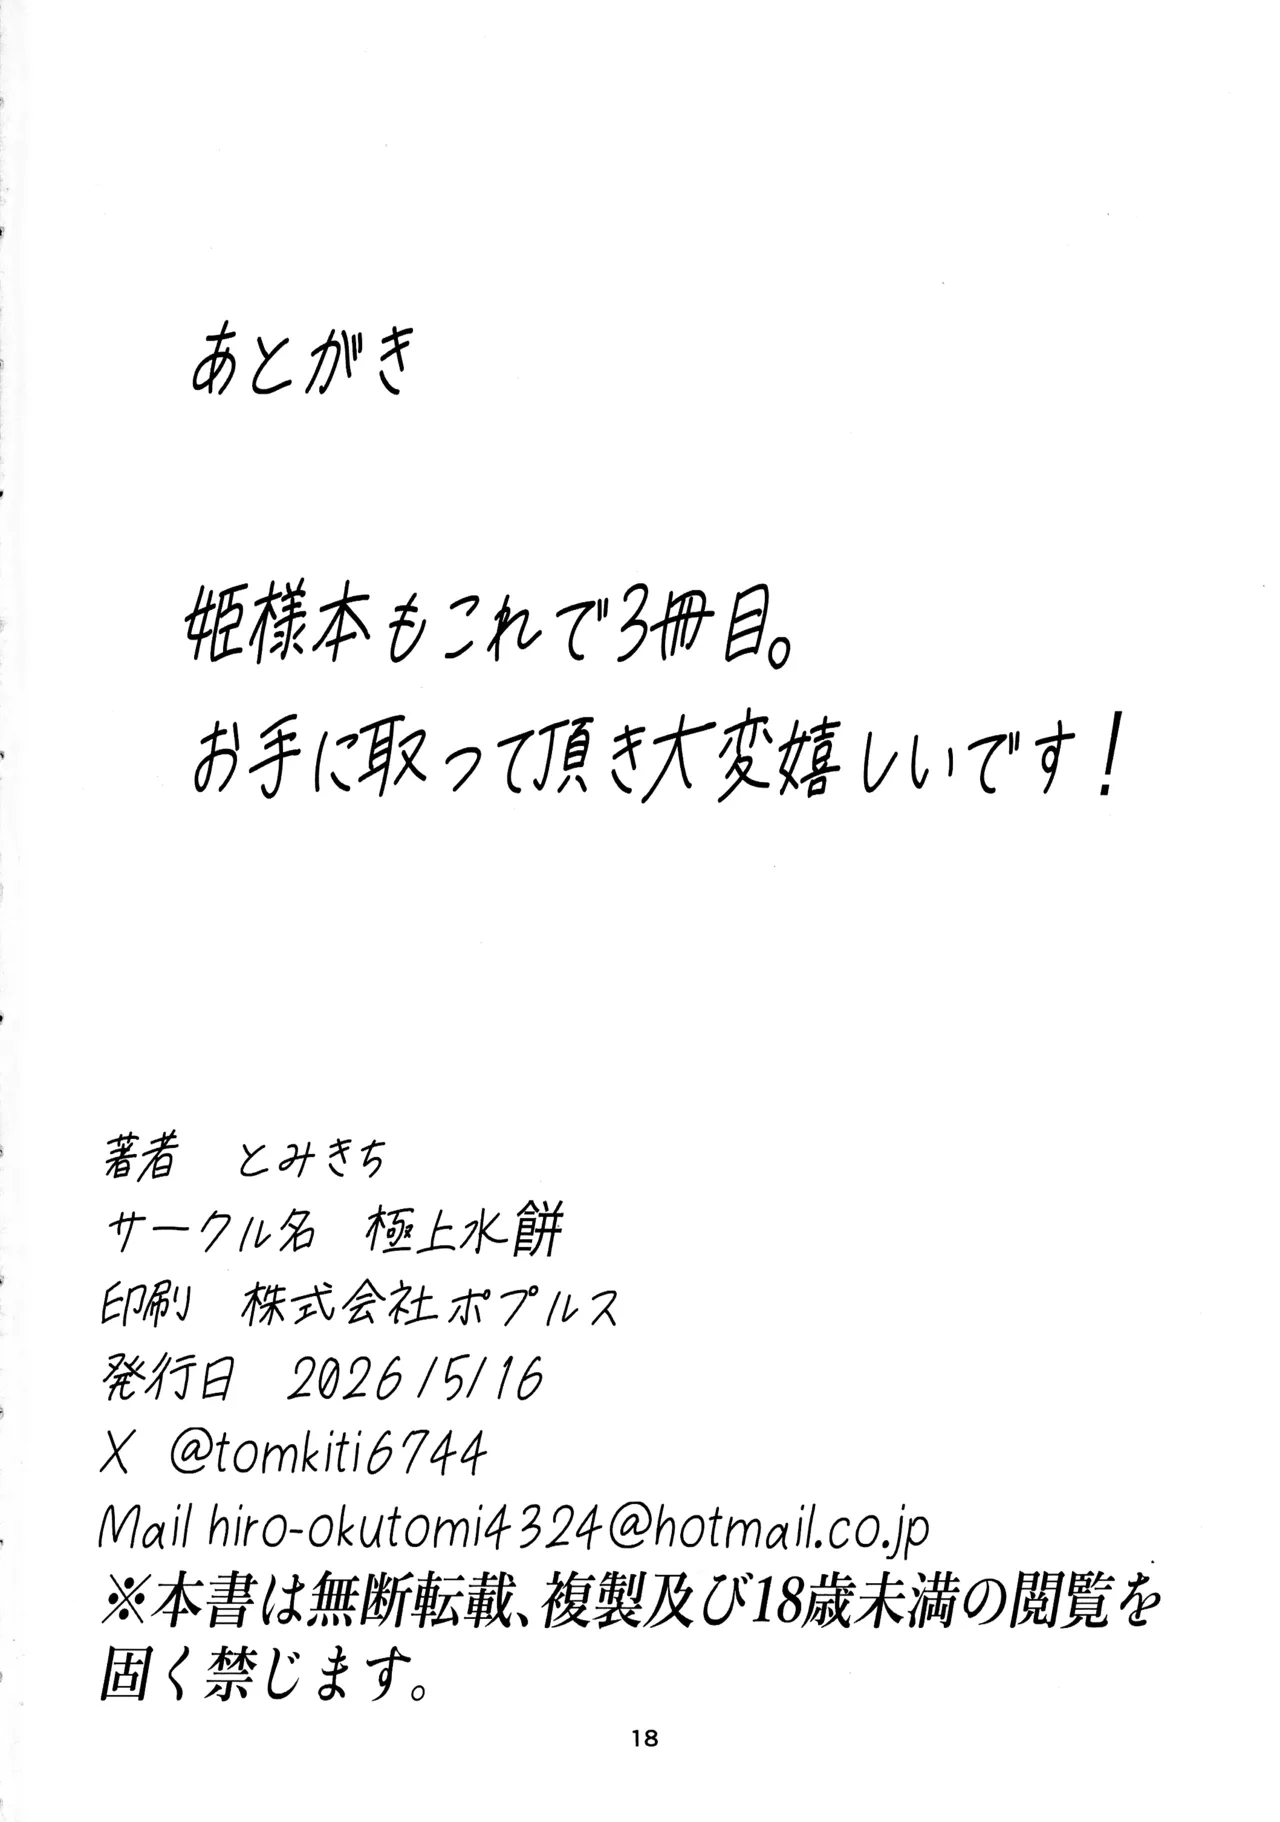 あとがき
姫様本もこれで3冊目。
お手に取って頂き大変嬉しいです！
著者　とみきち
サークル名　極上水餅
印刷　株式会社ポプルス
発行日　2026/5/16
X　@tomkiti6744
Mail hiro-okutomi4324@hotmail.co.jp
※本書は無断転載、複製及び18歳未満の閲覧を
固く禁じます。
18